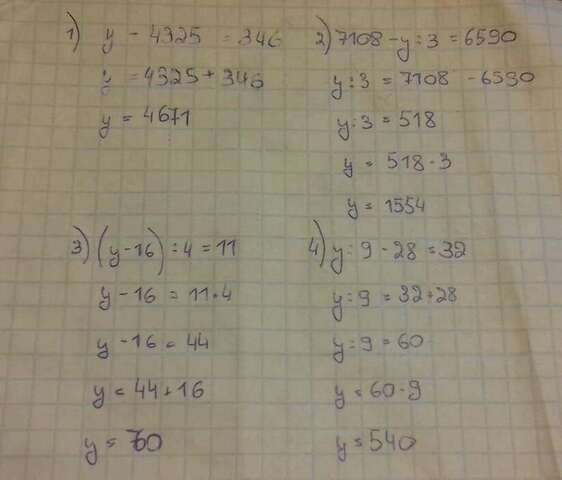 1) y - 4325 = 346
y = 4325 + 346
y = 4671
2) 7108 - y : 3 = 6590
y : 3 = 7108 - 6590
y : 3 = 518
y = 518 · 3
y = 1554
3) (y - 16) : 4 = 11
y - 16 = 11 · 4
y - 16 = 44
y = 44 + 16
y = 60
4) y : 9 - 28 = 32
y : 9 = 32 + 28
y : 9 = 60
y = 60 · 9
y = 540